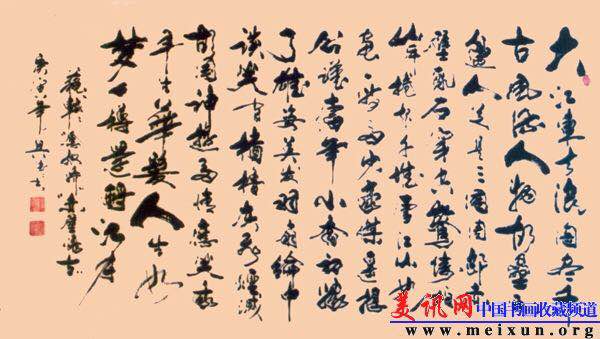 大江東去浪淘盡千
古風流人物故壘西
邊人道是三國周郎赤
壁亂石穿空驚濤拍
岸捲起千堆雪江山如
畫一時多少豪傑遙想
公瑾當年小喬初嫁
了雄姿英發羽扇綸巾
談笑間檣櫓灰飛煙滅
故國神遊多情應笑我
早生華髮人生如
夢一樽還酹江月
蘇軾念奴嬌赤壁懷古
庚寅年
美讯网 中国书画收藏频道
www.meixun.org